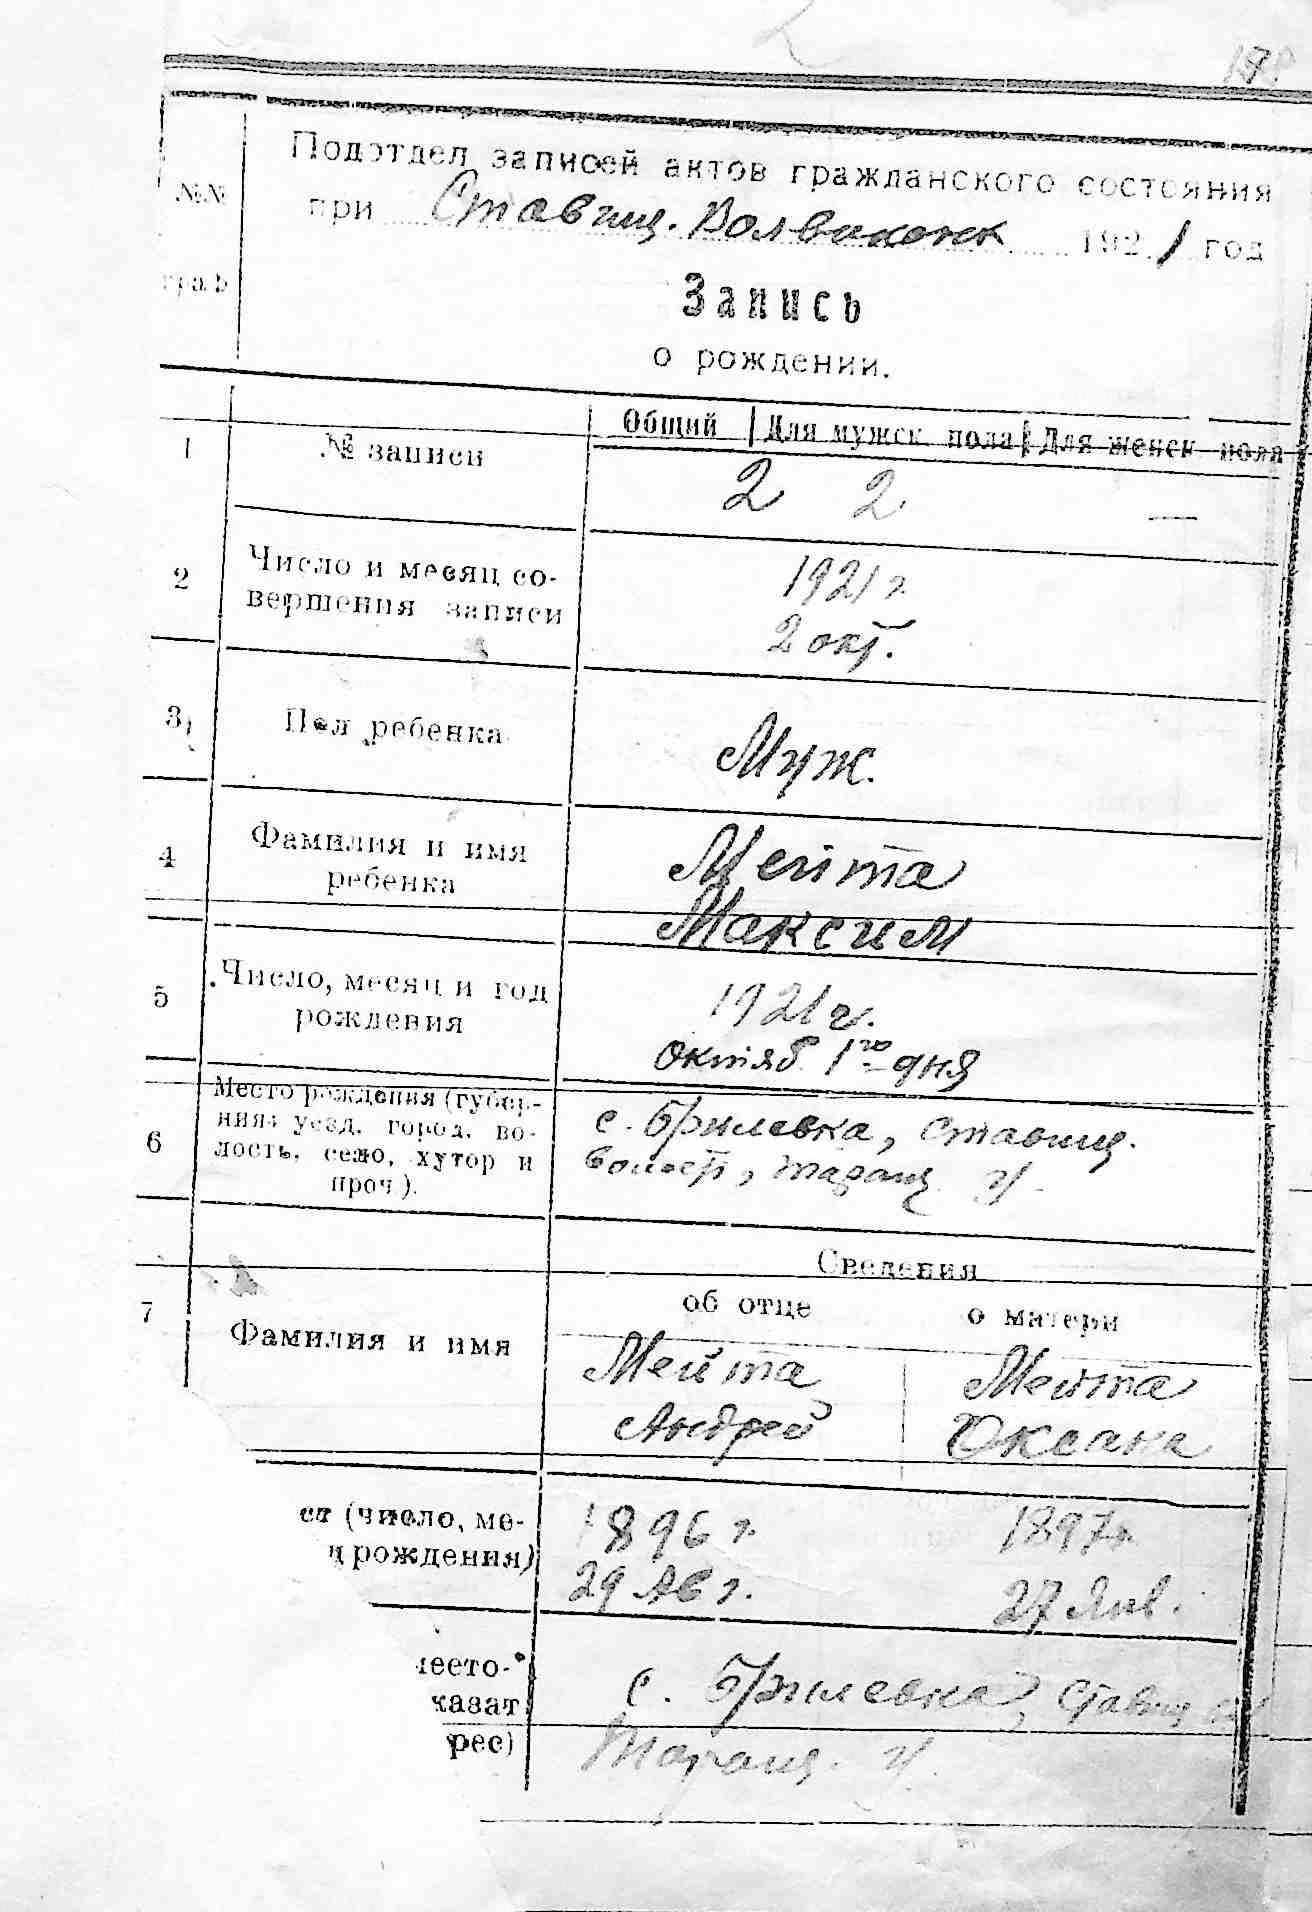 Подотдел записей актов гражданского состояния
№№
при Ставищ. Волвиконк 1921 год
граф
Запись
о рождении.
Общий Для мужск. пола Для женск. пола
1 № записи
2 2 —
2 Число и месяц со-
вершения записи
1921 г.
2 окт.
3 Пол ребенка
Муж.
4 Фамилия и имя
ребенка
Мейта
Максим
5 Число, месяц и год
рождения
1921 г.
Октяб. 1го дня
6 Место рождения (губер-
ния, уезд, город, во-
лость, село, хутор и
проч.).
с. Брилевка, Ставищ.
волост, Таращ. у.
Сведения
об отце о матери
7 Фамилия и имя
Мейта Мейта
Андрей Оксана
ст (число, ме-
ц рождения)
1896 г. 1897 г.
29 Авг. 27 Янв.
место-
казат
рес)
с. Брилевка, Ставищ
Таращ. у.